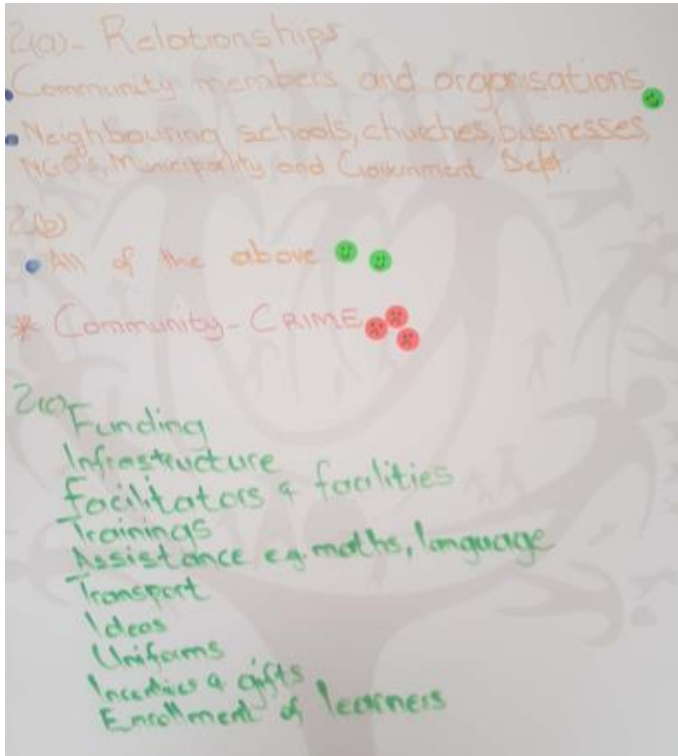 2(a) - Relationships
• Community members and organisations
• Neighbouring schools, churches, businesses,
NGO's, Municipality and Government Dept.
2(b)
• All of the above
* Community - CRIME
2(c)
Funding
Infrastructure
Facilitators & facilities
Trainings
Assistance e.g. maths, language
Transport
Ideas
Uniforms
& gifts
Enrollment of learners